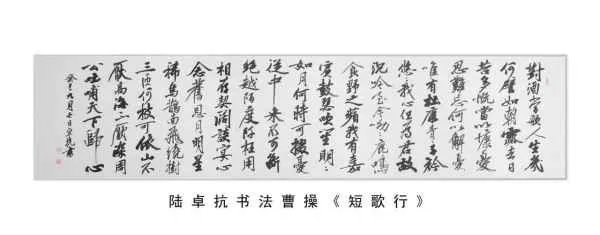 對酒當歌人生幾
何譬如朝露去日
苦多慨當以慷憂
思難忘何以解憂
唯有杜康青々子衿
悠々我心但為君故
沉吟至今呦々鹿鳴
食野之蘋我有嘉
賓鼓瑟吹笙明々
如月何時可掇憂
從中來不可斷
絕越陌度阡枉用
相存契闊談宴心
念舊恩月明星
稀烏鵲南飛繞樹
三匝何枝可依山不
厭高海不厭深周
公吐哺天下歸心
九月七日卓抗書
陆卓抗书法曹操《短歌行》